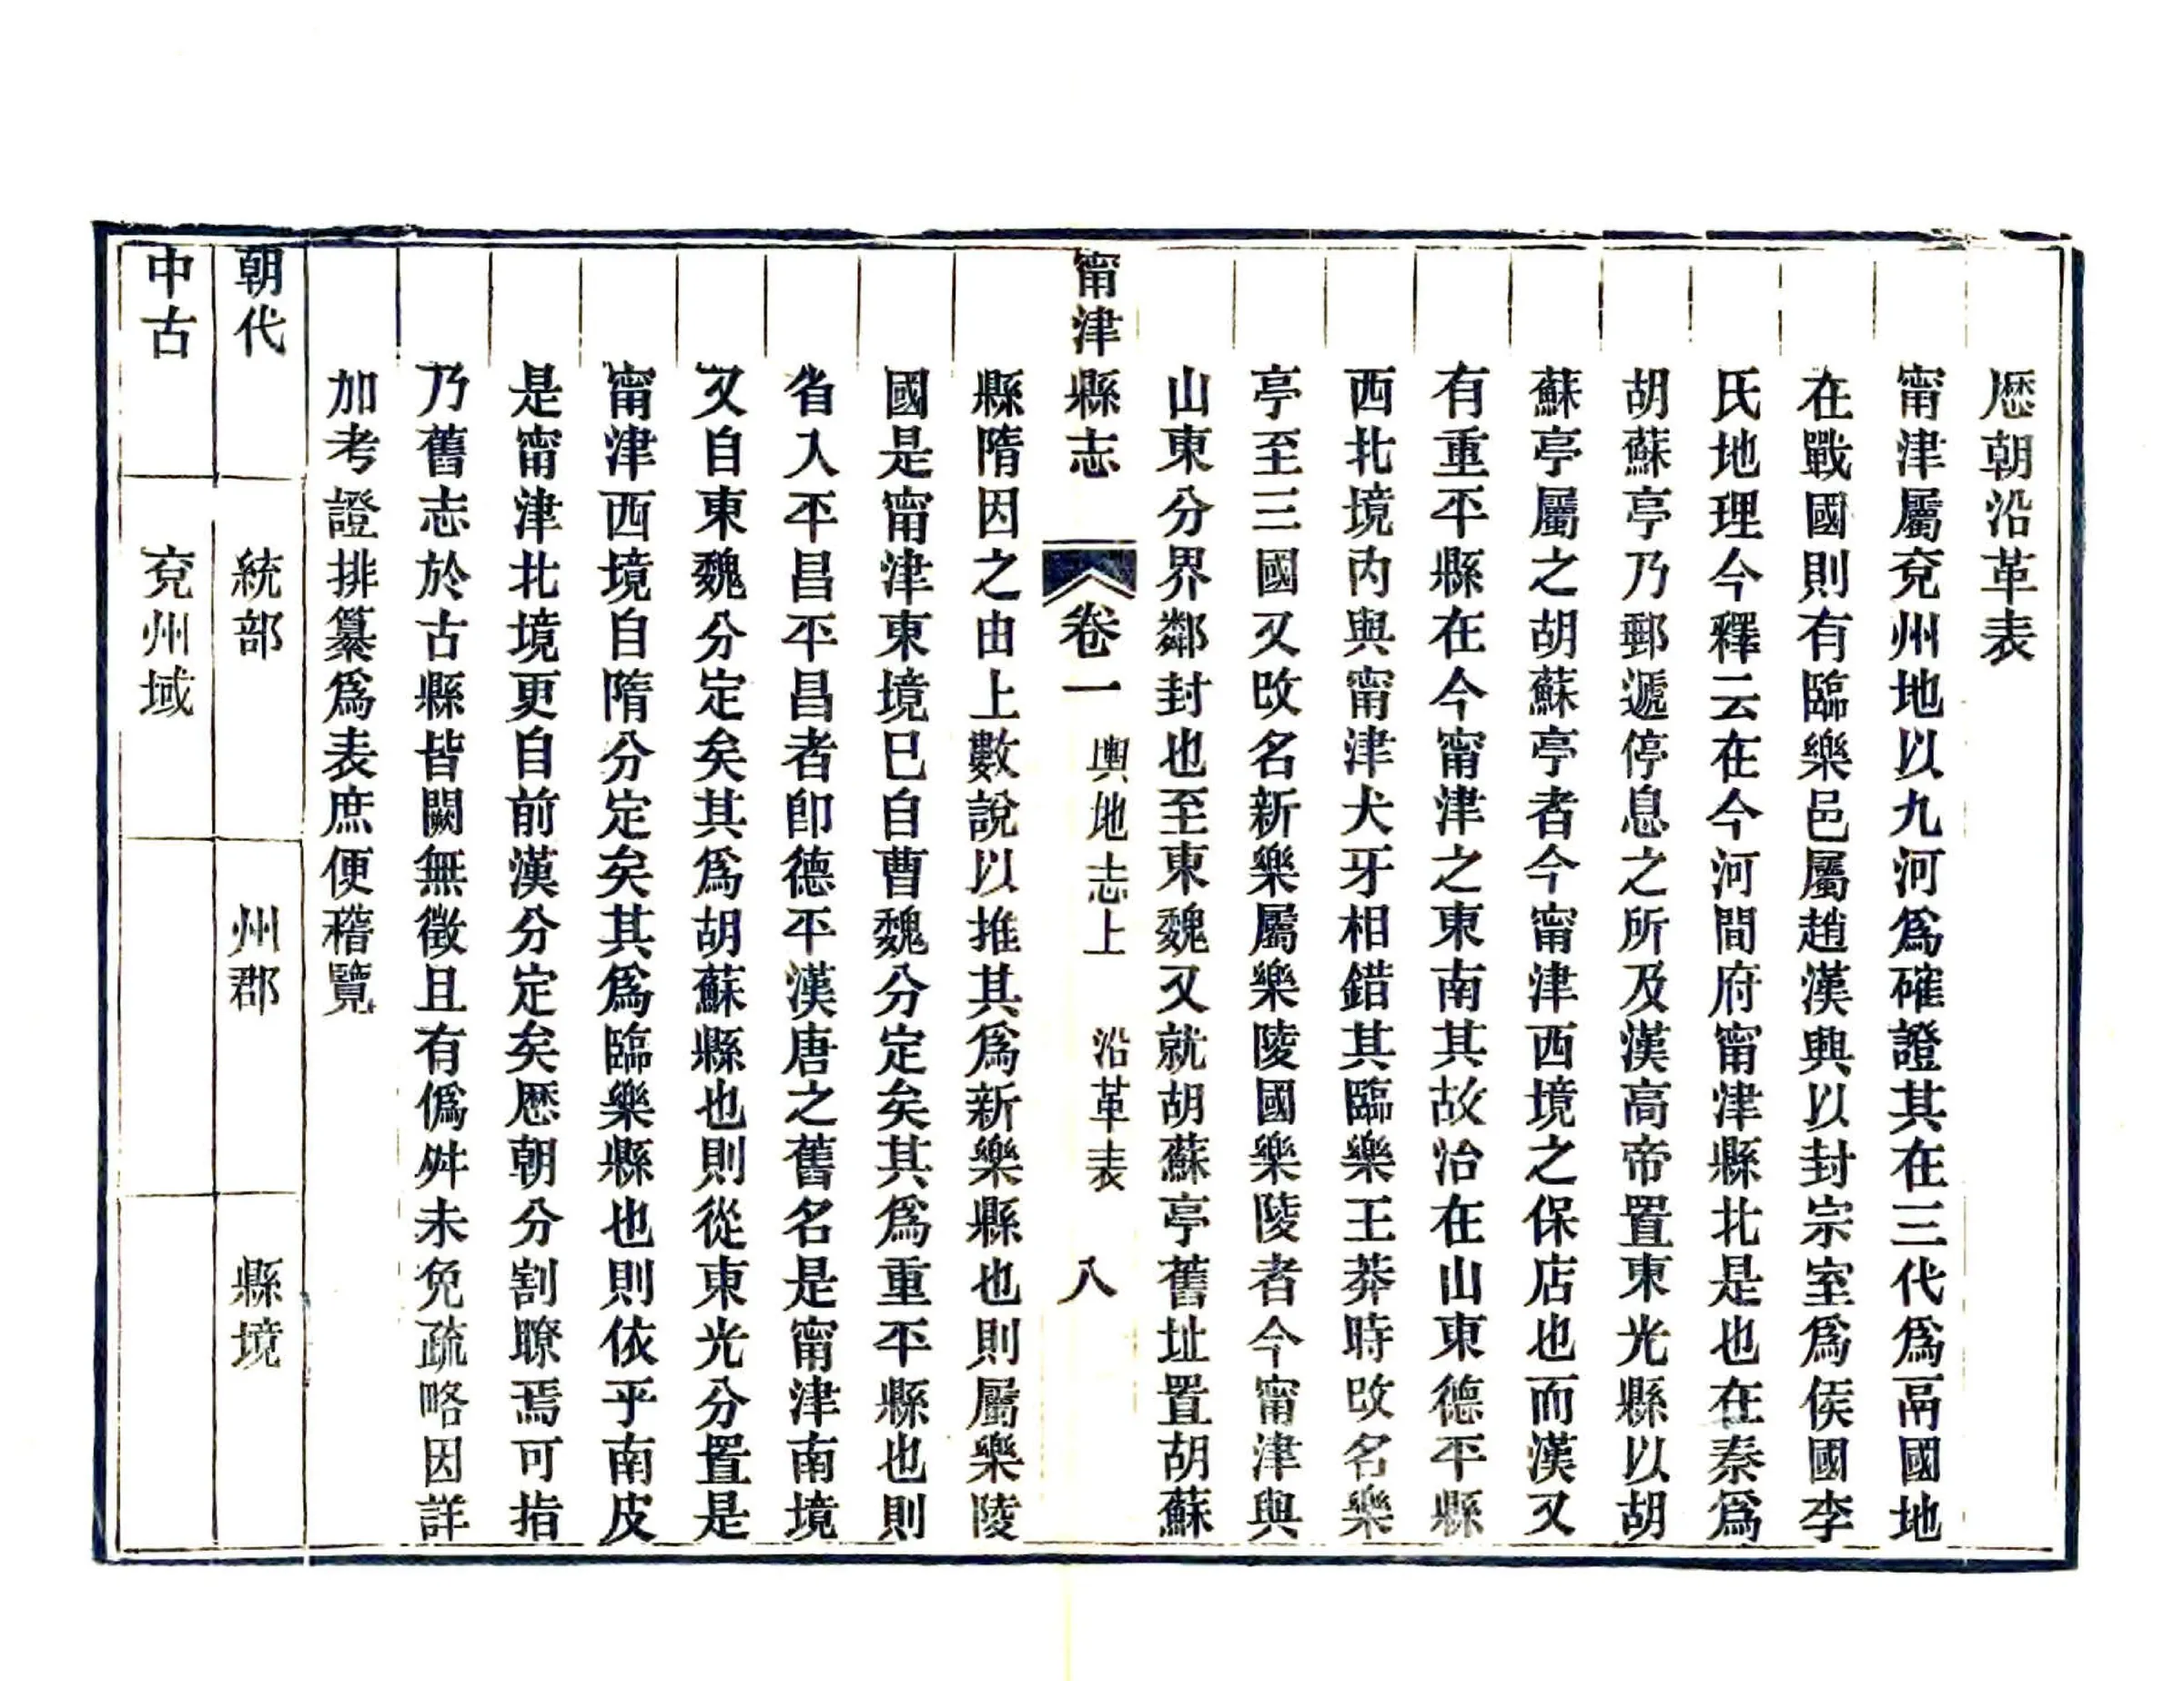 歷朝沿革表
甯津屬兗州地以九河爲確證其在三代爲鬲國地
在戰國則有臨樂邑屬趙漢興以封宗室爲侯國李
氏地理今釋云在今河間府甯津縣北是也在秦爲
胡蘇亭乃郵遞停息之所及漢高帝置東光縣以胡
蘇亭屬之胡蘇亭者今甯津西境之保店也而漢又
有重平縣在今甯津之東南其故治在山東德平縣
西北境內與甯津犬牙相錯其臨樂王莽時改名樂
亭至三國又改名新樂屬樂陵國樂陵者今甯津與
山東分界鄰封也至東魏又就胡蘇亭舊址置胡蘇
甯津縣志 卷一 輿地志上 沿革表 八
縣隋因之由上數說以推其爲新樂縣也則屬樂陵
國是甯津東境已自曹魏分定矣其爲重平縣也則
省入平昌平昌者卽德平漢唐之舊名是甯津南境
又自東魏分定矣其爲胡蘇縣也則從東光分置是
甯津西境自隋分定矣其爲臨樂縣也則依乎南皮
是甯津北境更自前漢分定矣歷朝分割瞭焉可指
乃舊志於古縣皆闕無徵且有僞舛未免疏略因詳
加考證排纂爲表庶便稽覽
朝代 統部 州郡 縣境
中古 兗州域